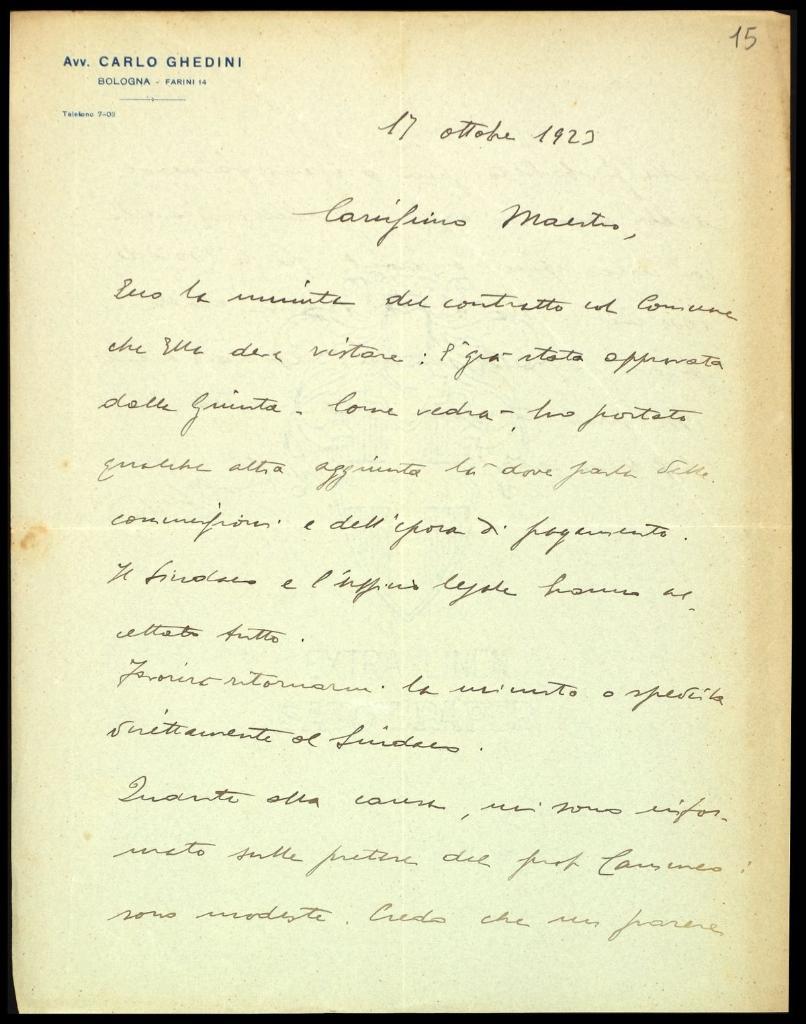 15
Avv. CARLO GHEDINI
BOLOGNA - FARINI 14
Telefono 7-03
17 ottobre 1923
Carissimo Maestro,
Ecco la minuta del contratto col Comune
che Ella deve vistare: è già stata approvata
dalla Giunta. Come vedrà, ho portato
qualche altra aggiunta là dove parla delle
commissioni e dell'epoca di pagamento.
Il Sindaco e l'ufficio legale hanno ac-
cettato tutto.
Favorirà ritornarmi la minuta o spedirla
direttamente al Sindaco.
Quanto alla causa, mi sono infor-
mato sulle pretese del prof.
sono modeste. Credo che un parere